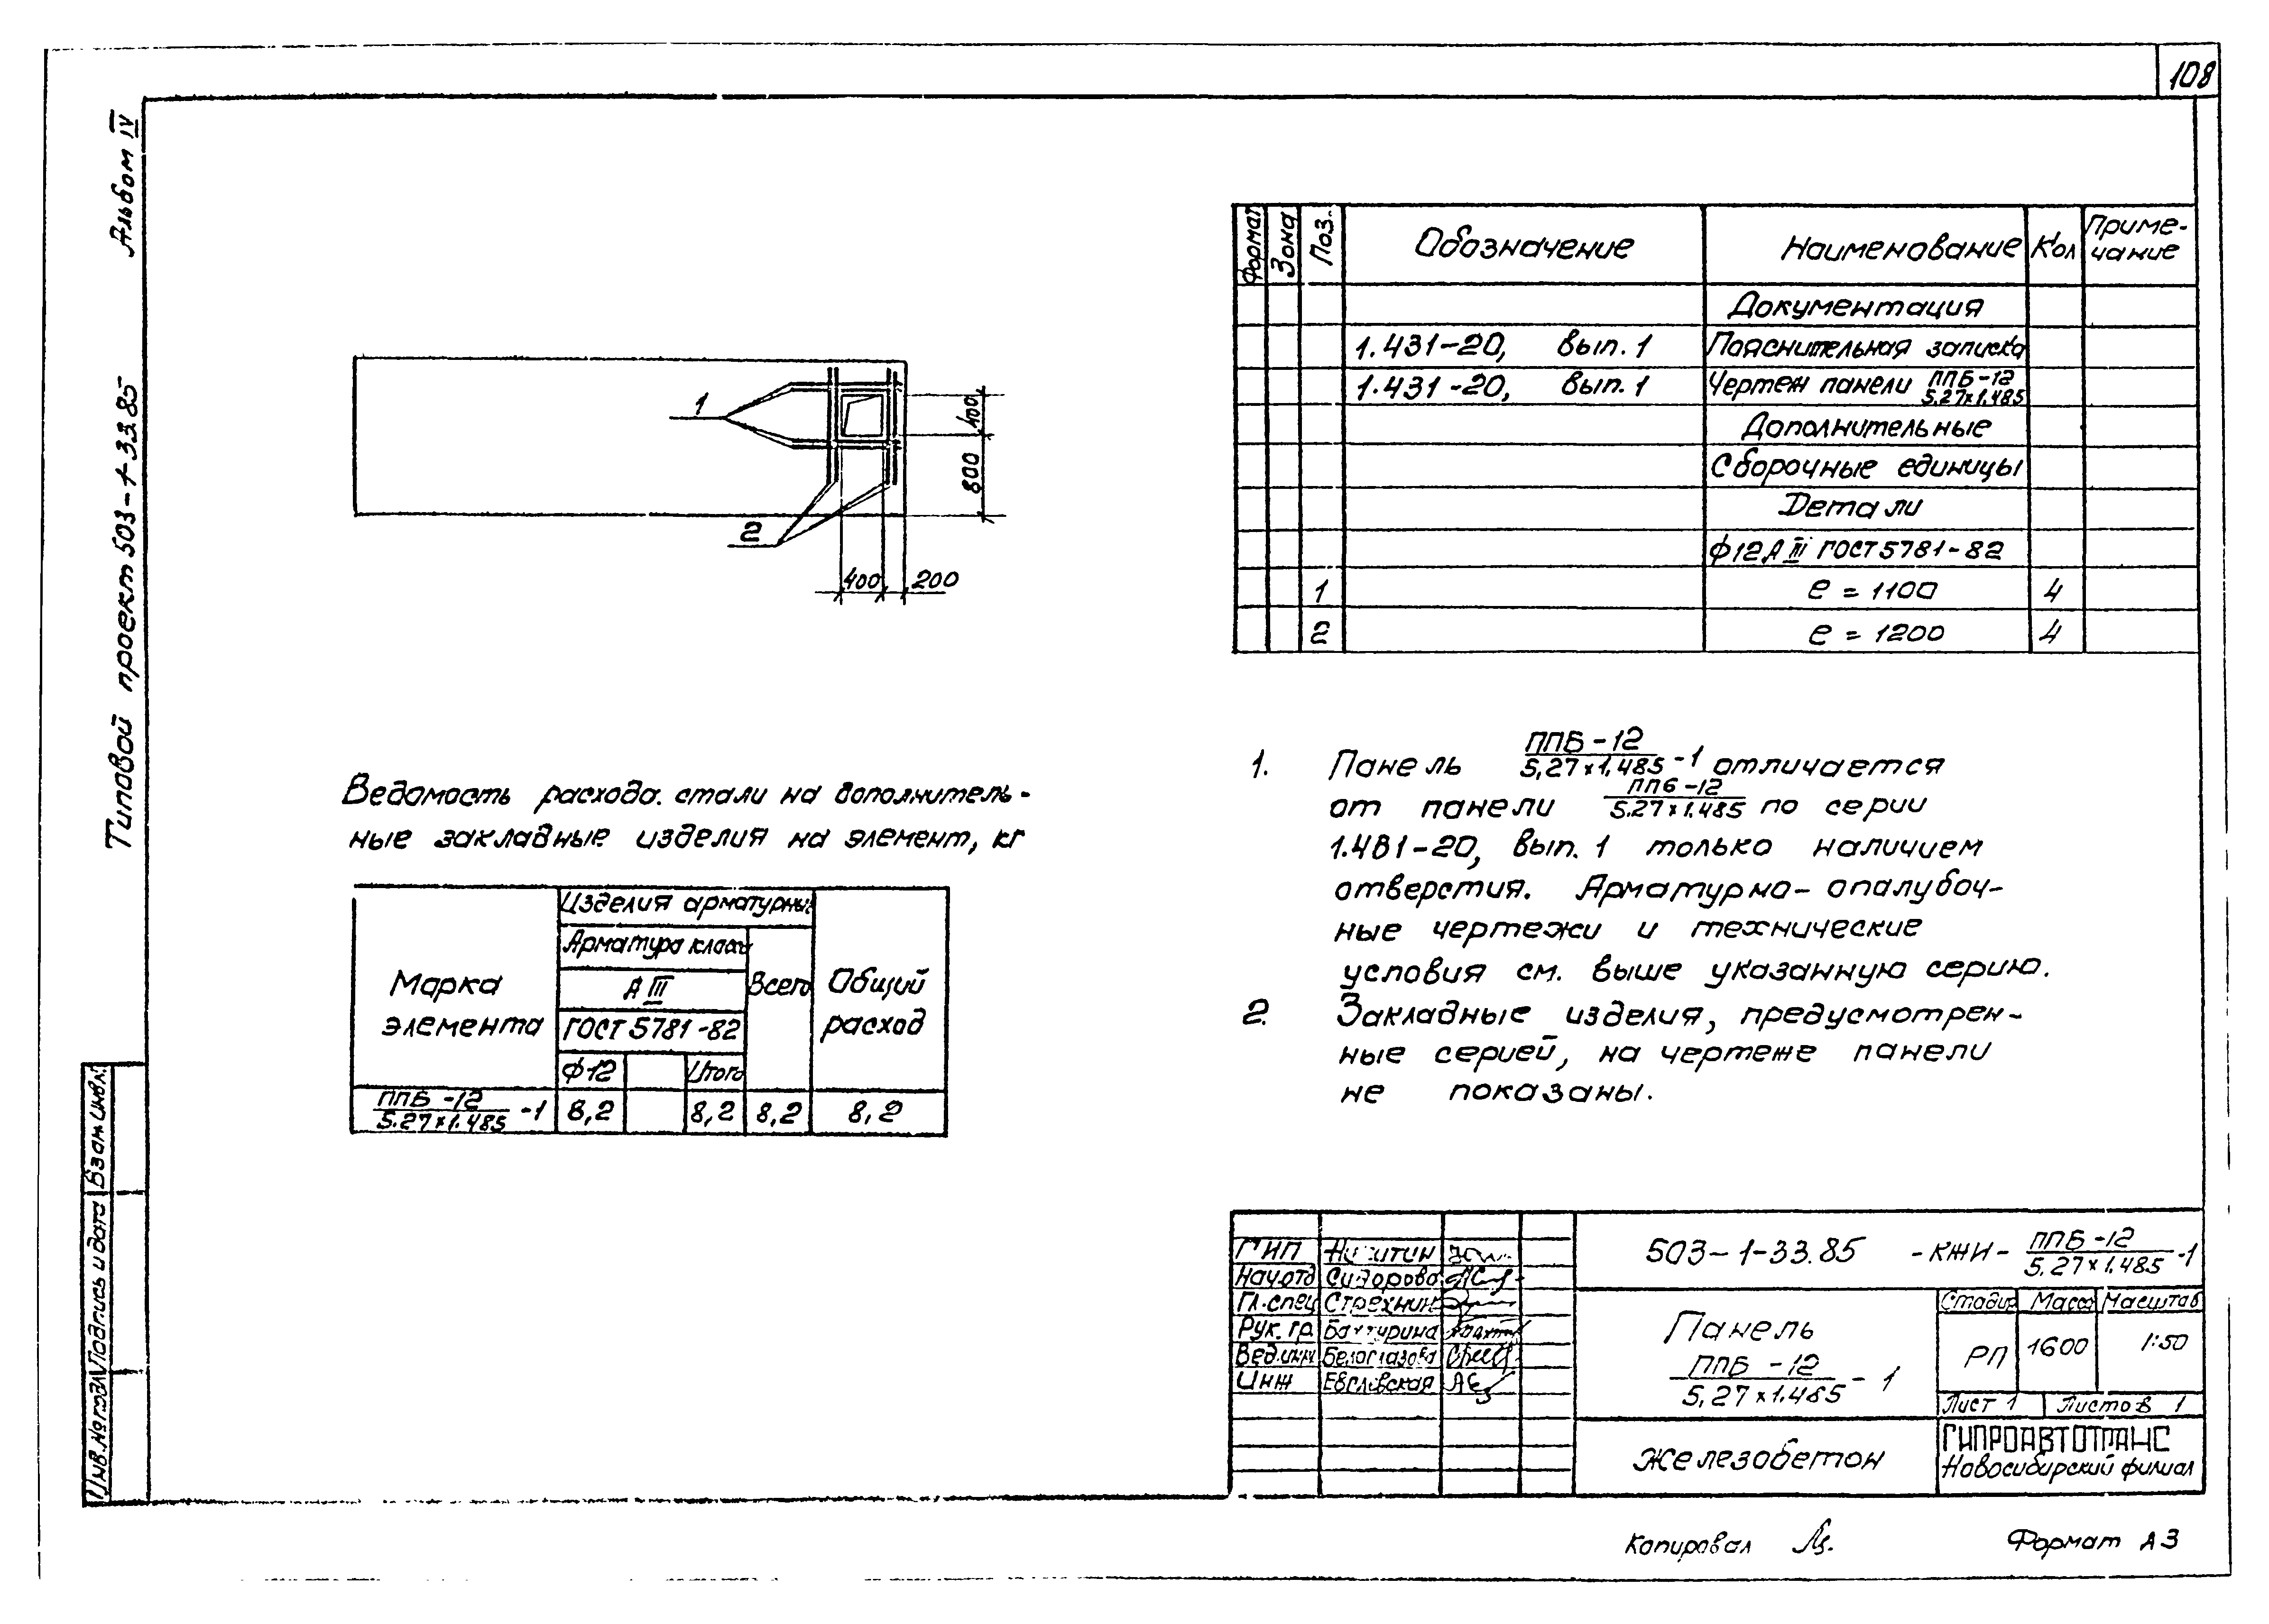 108
Альбом IV
Типовой проект 503-1-33.85
Взам инв.
Подпись и дата
Инв. №
1
2
400
800
400
200
Формат Зона Поз. Обозначение Наименование Кол Приме-
чание
Документация
1.431-20, вып. 1 Пояснительная записка
1.431-20, вып. 1 Чертеж панели ППБ-12
5.27×1.485
Дополнительные
Сборочные единицы
Детали
ф12АIII ГОСТ5781-82
1 e = 1100 4
2 e = 1200 4
Ведомость расхода. стали на дополнитель-
ные закладные изделия на элемент, кг
Марка
элемента
Изделия арматурны
Арматура класс
А III
ГОСТ 5781-82
ф12
Итого
Всего
Общий
расход
ППБ-12
5.27×1.485 -1 8,2 8,2 8,2 8,2
ППБ-12
1. Панель 5,27×1.485 -1 отличается
ППБ-12
от панели 5.27×1.485 по серии
1.431-20, вып. 1 только наличием
отверстия. Арматурно-опалубоч-
ные чертежи и технические
условия см. выше указанную серию.
2. Закладные изделия, предусмотрен-
ные серией, на чертеже панели
не показаны.
ГИП Никитин
Нач.отд Сидорова
Гл.спец Стрехнин
Рук. гр. Бахтурина
Вед.инж Белоглазова
Инж
503-1-33.85 -КЖИ- ППБ-12
5.27×1.485 -1
Панель
ППБ-12
5,27×1.485 -1
Стадия Масса Масштаб
РП 1600 1:50
Лист 1 Листов 1
Железобетон
ГИПРОАВТОТРАНС
Новосибирский филиал
Копировал
Формат А3